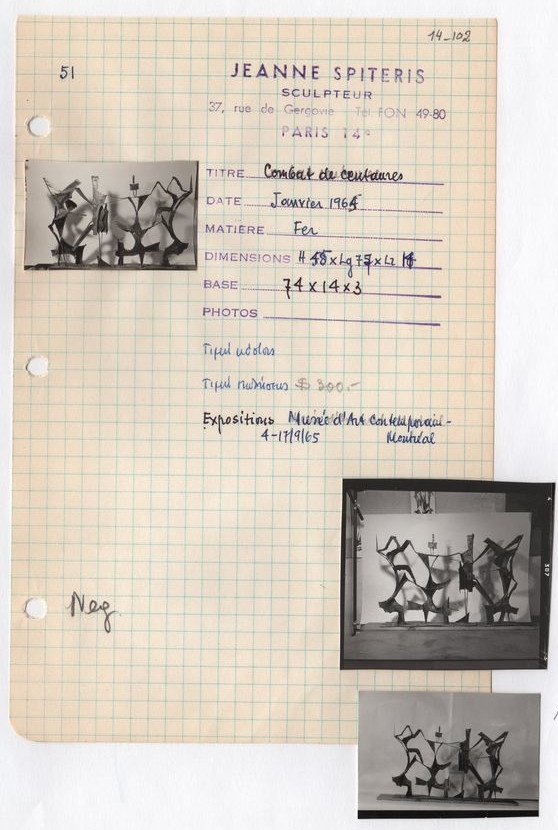 14-102
51
JEANNE SPITERIS
SCULPTEUR
37, rue de Gergovie Tél. FON 49-80
PARIS 14e
TITRE Combat de centaures
DATE Janvier 1965
MATIÈRE Fer
DIMENSIONS H x Lg x Lz
BASE 74 x 14 x 3
PHOTOS
Τιμή
Τιμή πωλήσεως $ 300.-
Expositions Musée d'Art Contemporain-
4-17/9/65 Montréal
Neg.
307